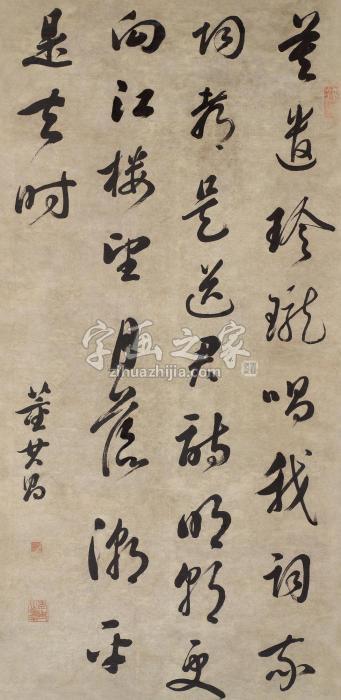 莫遣玲瓏唱我詞我
詞都是送君詩明朝更
向江樓望月落潮平
是去時
董其昌
字画之家
zihuazhijia.com